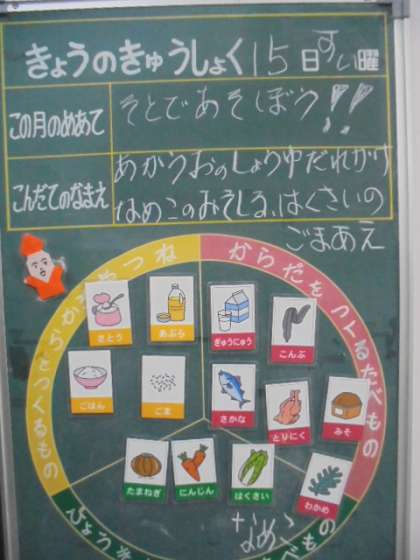 きょうのきゅうしょく 15日 すい曜
この月のめあて
そとであそぼう!!
こんだてのなまえ
あかうおのしょうゆだれかけ
なめこのみそしる、はくさいの
ごまあえ
からだをつくるたべもの
さとう
あぶら
ぎゅうにゅう
こんぶ
ごはん
ごま
さかな
とりにく
みそ
たまねぎ
にんじん
はくさい
わかめ
なめこ